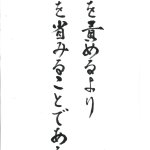 を責めるより
を省みることであ